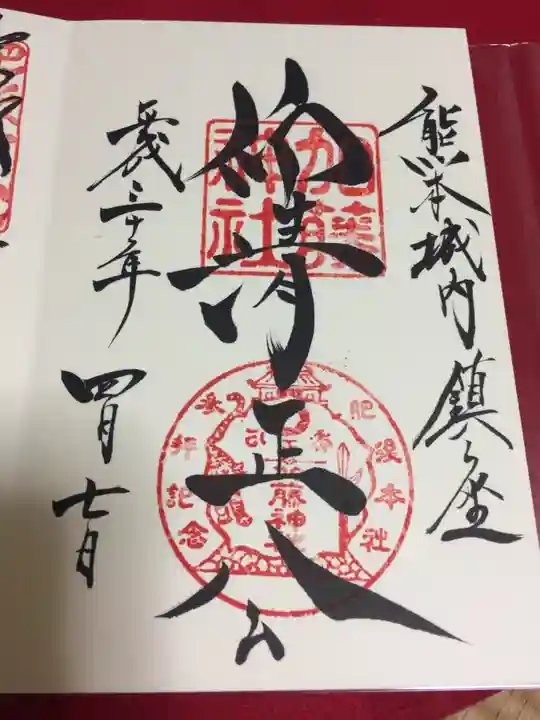 熊本城内鎮座
仰清正公
加藤
神社
肥後本社
参拝記念
藤神社
平成三十年
四月七日